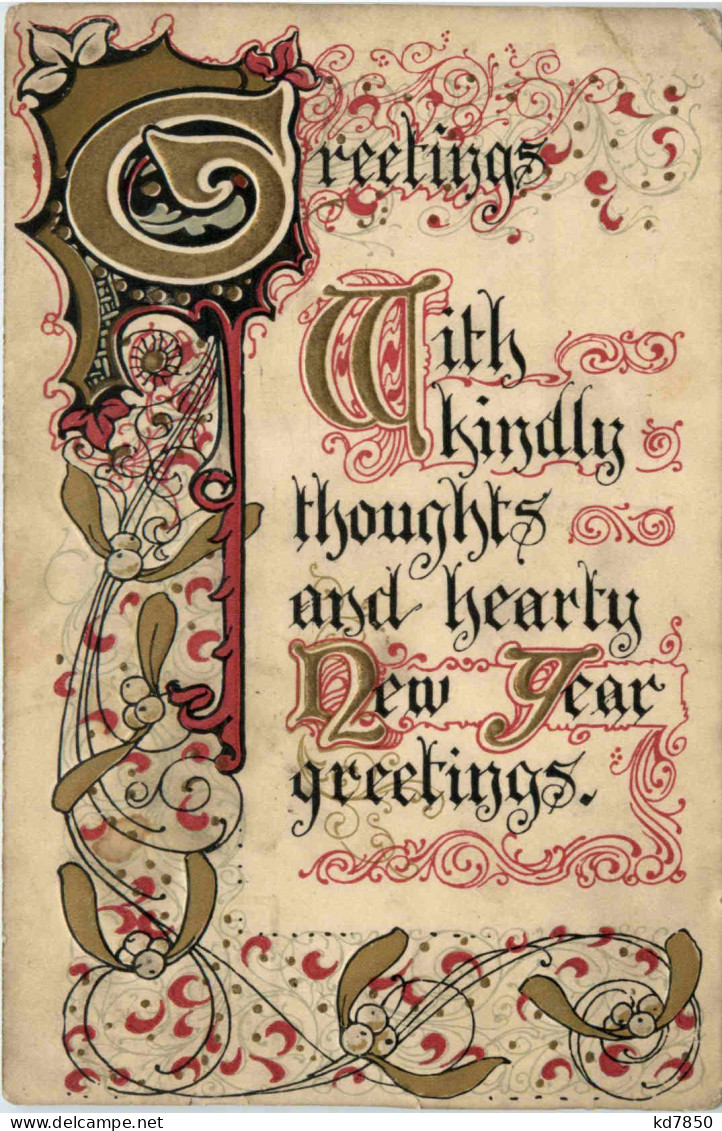 Greetings
With
kindly
thoughts
and hearty
New Year
greetings.
kd7850